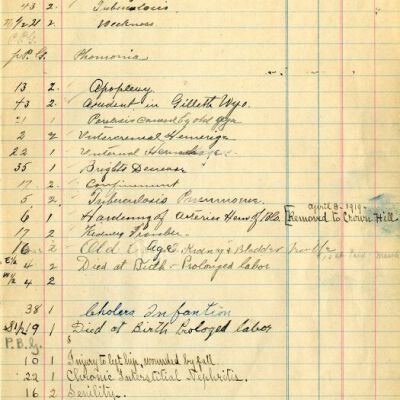 43 2 Tuberculosis
2 Weakness
P.B.G.
P.G. Phomonia
13 2 Apoplexy
43 2 Axident in Gilleth Wyo.
21 1 Peralasis caused by old age
2 2 Intercrenial Hemerige
22 1 Internal Hemorhage
35 1 Brights Decease
17 2 Confinement
5 2 Tuberculosis Pneumonia
April 3- 1919-
6 1 Hardening of Arteries Hem of [Removed to Crown Hill
17 2 Kidney Trouble
16 2 Old Age Kidney & Bladder
4 2 Died at Birth - Prolonged labor
4 2
38 1 Cholera Infantion
19 1 Died at Birth Prologed labor
P.B.G.
10 1 Injury to left hip, wounded by fall
22 1 Chronic Interstitial Nephritis.
16 2 Senility.